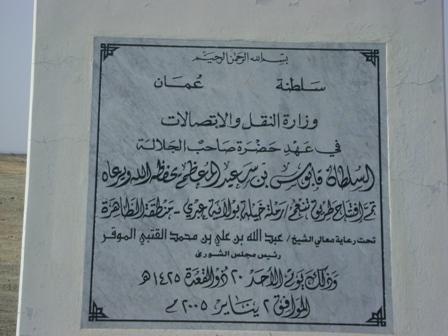 بسم الله الرحمن الرحيم
سلطنة عُمان
وزارة النقل والاتصالات
في عهد حضرة صاحب الجلالة
السلطان قابوس بن سعيد المعظم يحفظه الله ويرعاه
تم افتتاح طريق تنعم رملة خيلة بولاية عبري - منطقة الظاهرة
تحت رعاية معالي الشيخ / عبد الله بن علي بن محمد القتبي الموقر
رئيس مجلس الشورى
وذلك يوم الأحد ٢٠ ذو القعدة ١٤٢٥هـ
الموافق ٢ يناير ٢٠٠٥م